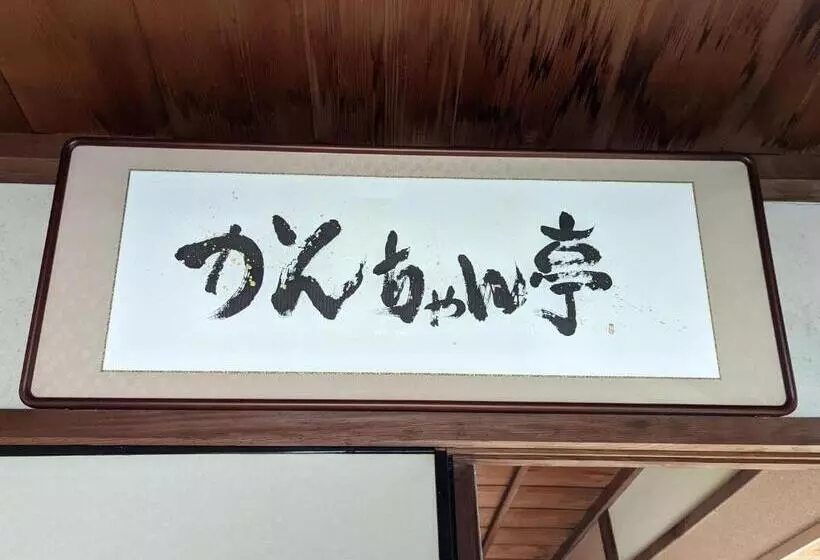 かんちゃん亭